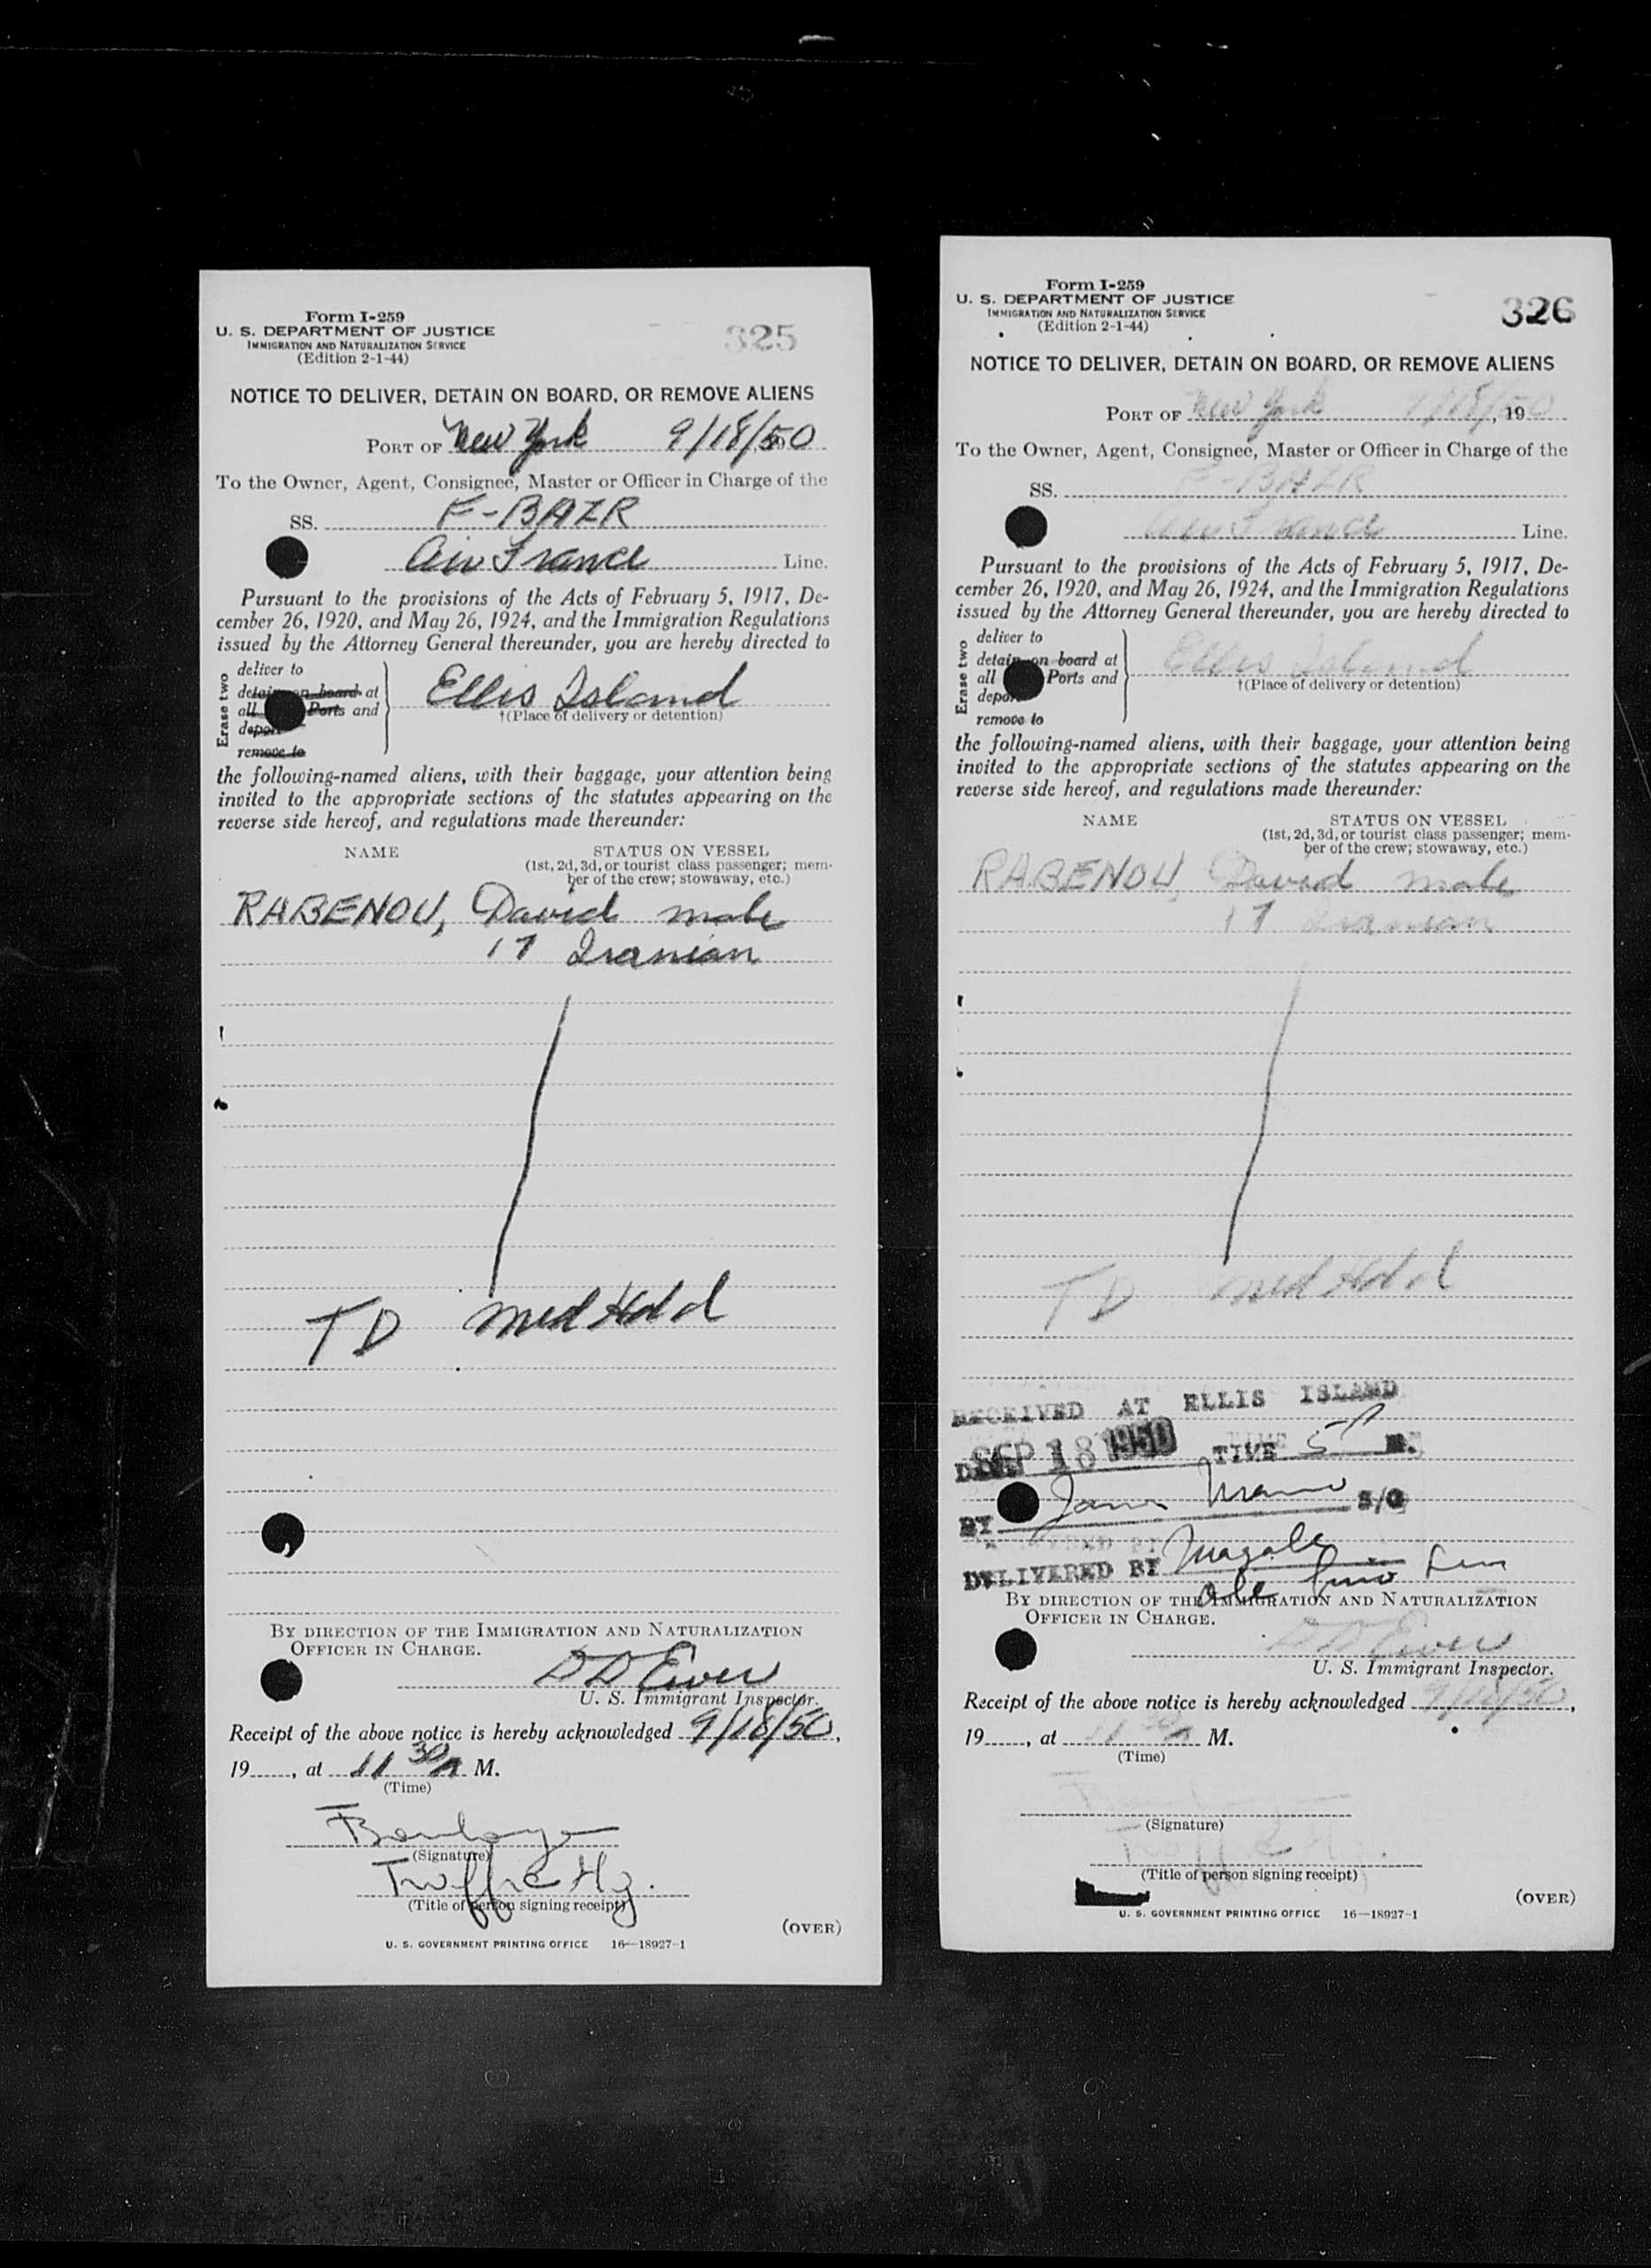 Form I-259
U. S. DEPARTMENT OF JUSTICE
IMMIGRATION AND NATURALIZATION SERVICE
(Edition 2-1-44)
325
NOTICE TO DELIVER, DETAIN ON BOARD, OR REMOVE ALIENS
PORT OF New York 9/18/50
To the Owner, Agent, Consignee, Master or Officer in Charge of the
SS. F-BAZR
Air France Line.
Pursuant to the provisions of the Acts of February 5, 1917, De-
cember 26, 1920, and May 26, 1924, and the Immigration Regulations
issued by the Attorney General thereunder, you are hereby directed to
Erase two
deliver to
detain on board at
all Ports and
depor
remove to
Ellis Island
†(Place of delivery or detention)
the following-named aliens, with their baggage, your attention being
invited to the appropriate sections of the statutes appearing on the
reverse side hereof, and regulations made thereunder:
NAME
STATUS ON VESSEL
(1st, 2d, 3d, or tourist class passenger; mem-
ber of the crew; stowaway, etc.)
RABENOU, David male
17 Iranian
TD Med Hold
BY DIRECTION OF THE IMMIGRATION AND NATURALIZATION
OFFICER IN CHARGE.
U. S. Immigrant Inspector.
Receipt of the above notice is hereby acknowledged 9/18/50,
19......, at 11 30 A M.
(Time)
(Signature)
Traffic
(Title of person signing receipt)
(OVER)
U. S. GOVERNMENT PRINTING OFFICE 16—18927-1
Form I-259
U. S. DEPARTMENT OF JUSTICE
IMMIGRATION AND NATURALIZATION SERVICE
(Edition 2-1-44)
326
NOTICE TO DELIVER, DETAIN ON BOARD, OR REMOVE ALIENS
PORT OF New York 9/18/50, 19
To the Owner, Agent, Consignee, Master or Officer in Charge of the
SS. F-BAZR
Air France Line.
Pursuant to the provisions of the Acts of February 5, 1917, De-
cember 26, 1920, and May 26, 1924, and the Immigration Regulations
issued by the Attorney General thereunder, you are hereby directed to
Erase two
deliver to
detain on board at
all Ports and
depor
remove to
Ellis Island
†(Place of delivery or detention)
the following-named aliens, with their baggage, your attention being
invited to the appropriate sections of the statutes appearing on the
reverse side hereof, and regulations made thereunder:
NAME
STATUS ON VESSEL
(1st, 2d, 3d, or tourist class passenger; mem-
ber of the crew; stowaway, etc.)
RABENOU, David male
17 Iranian
TD Med Hold
RECEIVED AT ELLIS ISLAND
DATE SEP 18 1950 TIME 5 P M.
BY S/O
DELIVERED BY
BY DIRECTION OF THE IMMIGRATION AND NATURALIZATION
OFFICER IN CHARGE.
U. S. Immigrant Inspector.
Receipt of the above notice is hereby acknowledged 9/18/50,
19......, at 11 30 A M.
(Time)
(Signature)
Traffic
(Title of person signing receipt)
(OVER)
U. S. GOVERNMENT PRINTING OFFICE 16—18927-1